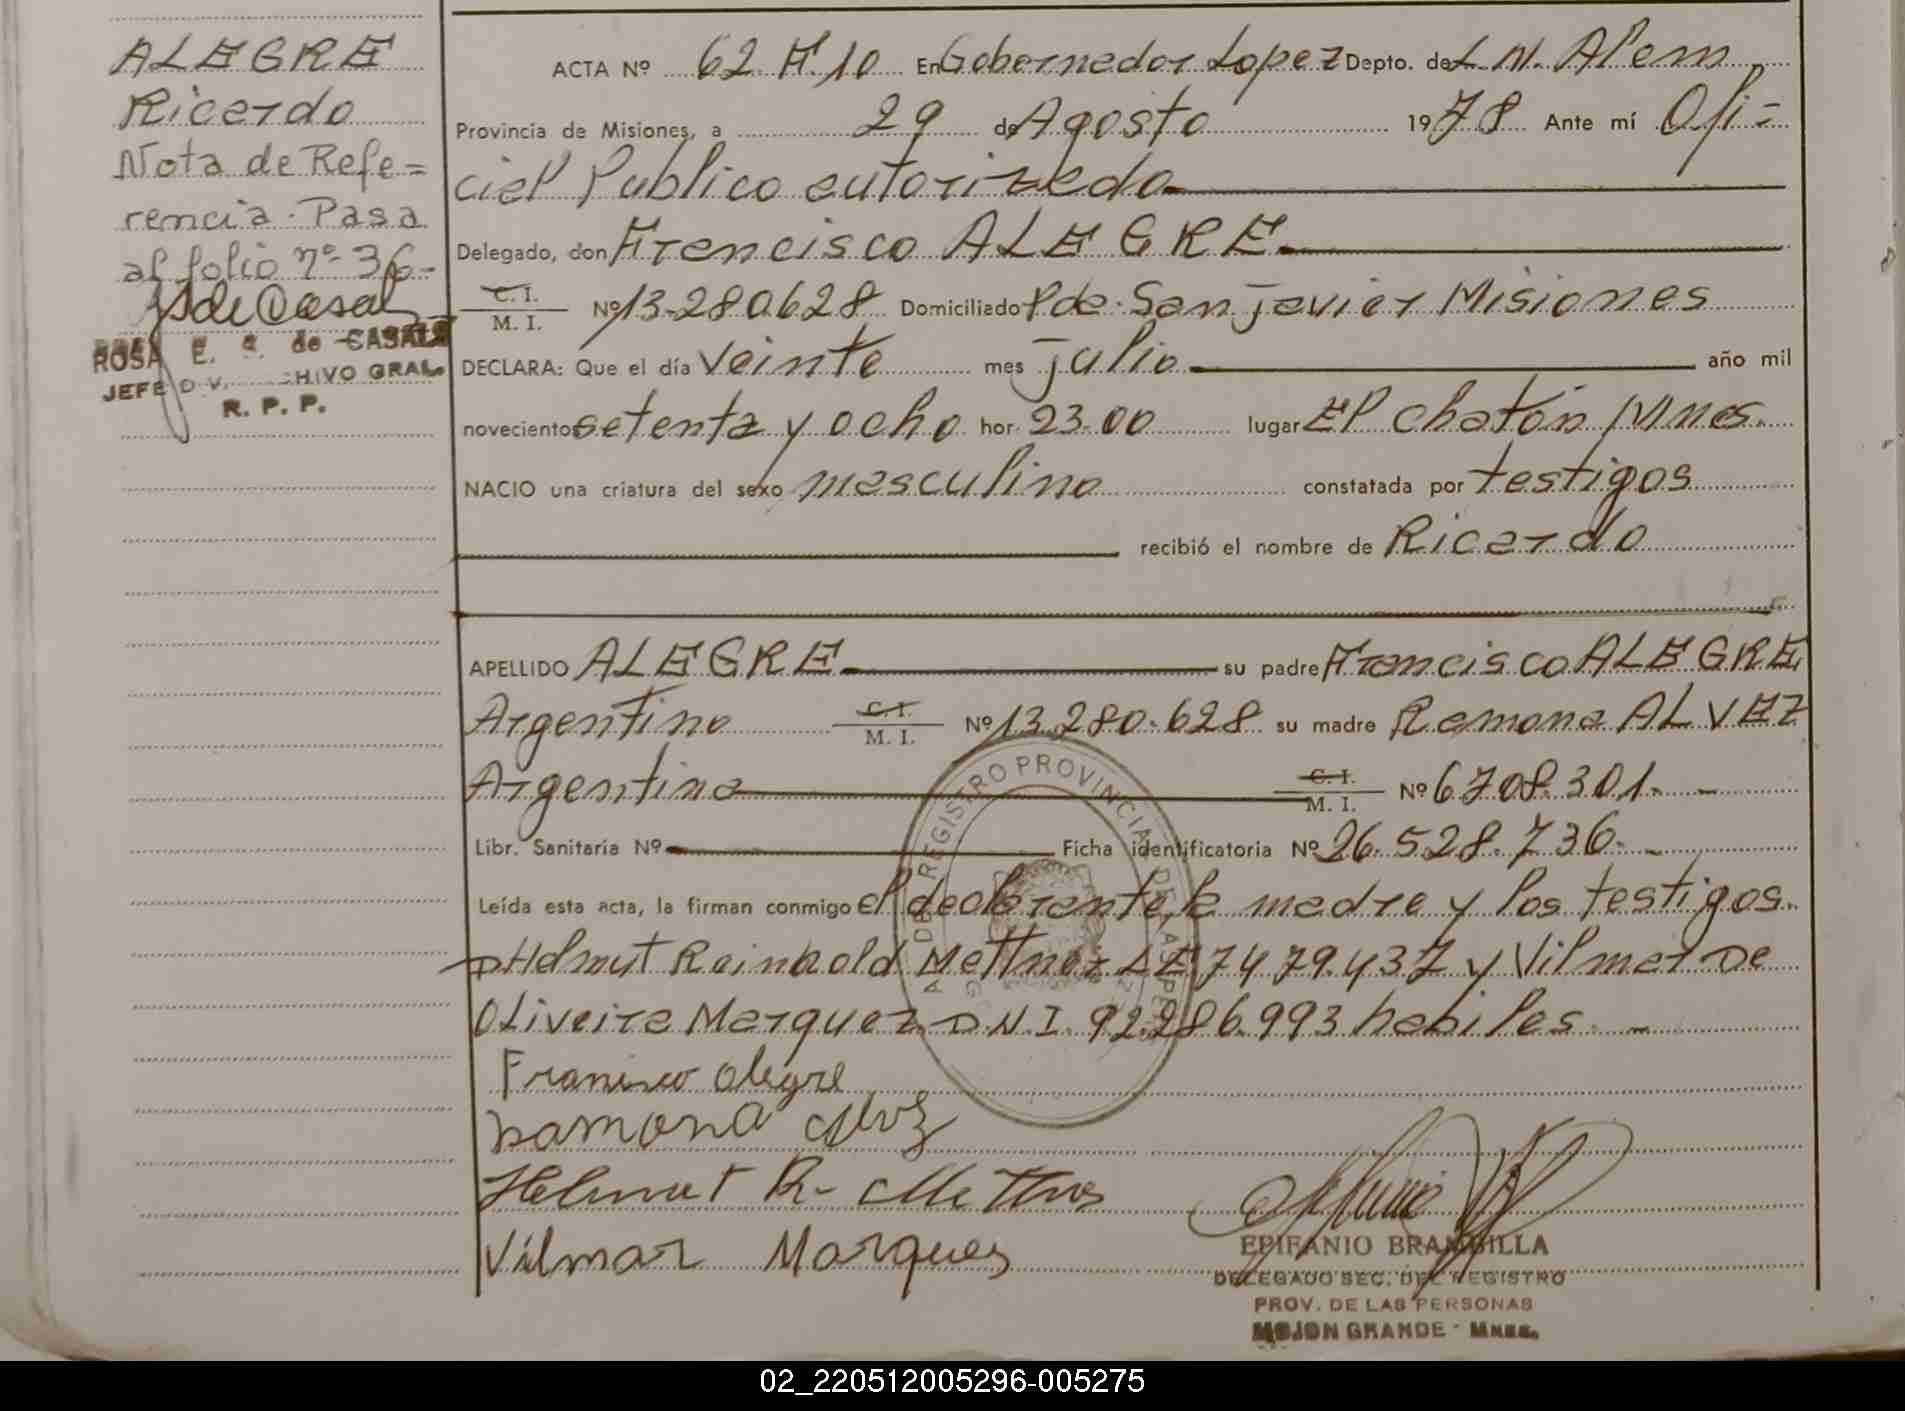 ALEGRE
Ricardo
Nota de Refe=
rencia. Pasa
al folio nº 36-
ROSA E. de CASALS
JEFE DIV. CHIVO GRAL.
R. P. P.
ACTA Nº 62 Fº 10 En Gobernador Lopez Depto. de L. N. Alem
Provincia de Misiones, a 29 de Agosto 1978 Ante mí Ofi=
cial Publico autorizado
Delegado, don Francisco ALEGRE
C. I.
M. I. Nº 13.280.628 Domiciliado Pde. San Javier Misiones
DECLARA: Que el día veinte mes julio año mil
novecientos setenta y ocho hor 23.00 lugar El Chatón Mnes.
NACIO una criatura del sexo masculino constatada por testigos
recibió el nombre de Ricardo
APELLIDO ALEGRE su padre Francisco ALEGRE
Argentino C. I. M. I. Nº 13.280.628 su madre Ramona ALVEZ
Argentina C. I. M. I. Nº 6708.301.-
Libr. Sanitaria Nº Ficha identificatoria Nº 26.528.736.-
Leída esta acta, la firman conmigo el declarante, la madre y los testigos.
D Helmut Reinhold Mettner LE 7479.437 y Vilmar De
Oliveira Marquez DNI. 92.286.993 habiles.-
REGISTRO PROVINCIAL DE LAS PE
Francisco Alegre
Ramona Alvez
Helmut R. Mettner
Vilmar Marques
EPIFANIO BRAMBILLA
DELEGADO SEC. DEL REGISTRO
PROV. DE LAS PERSONAS
MOJON GRANDE - MNES.
02_220512005296-005275